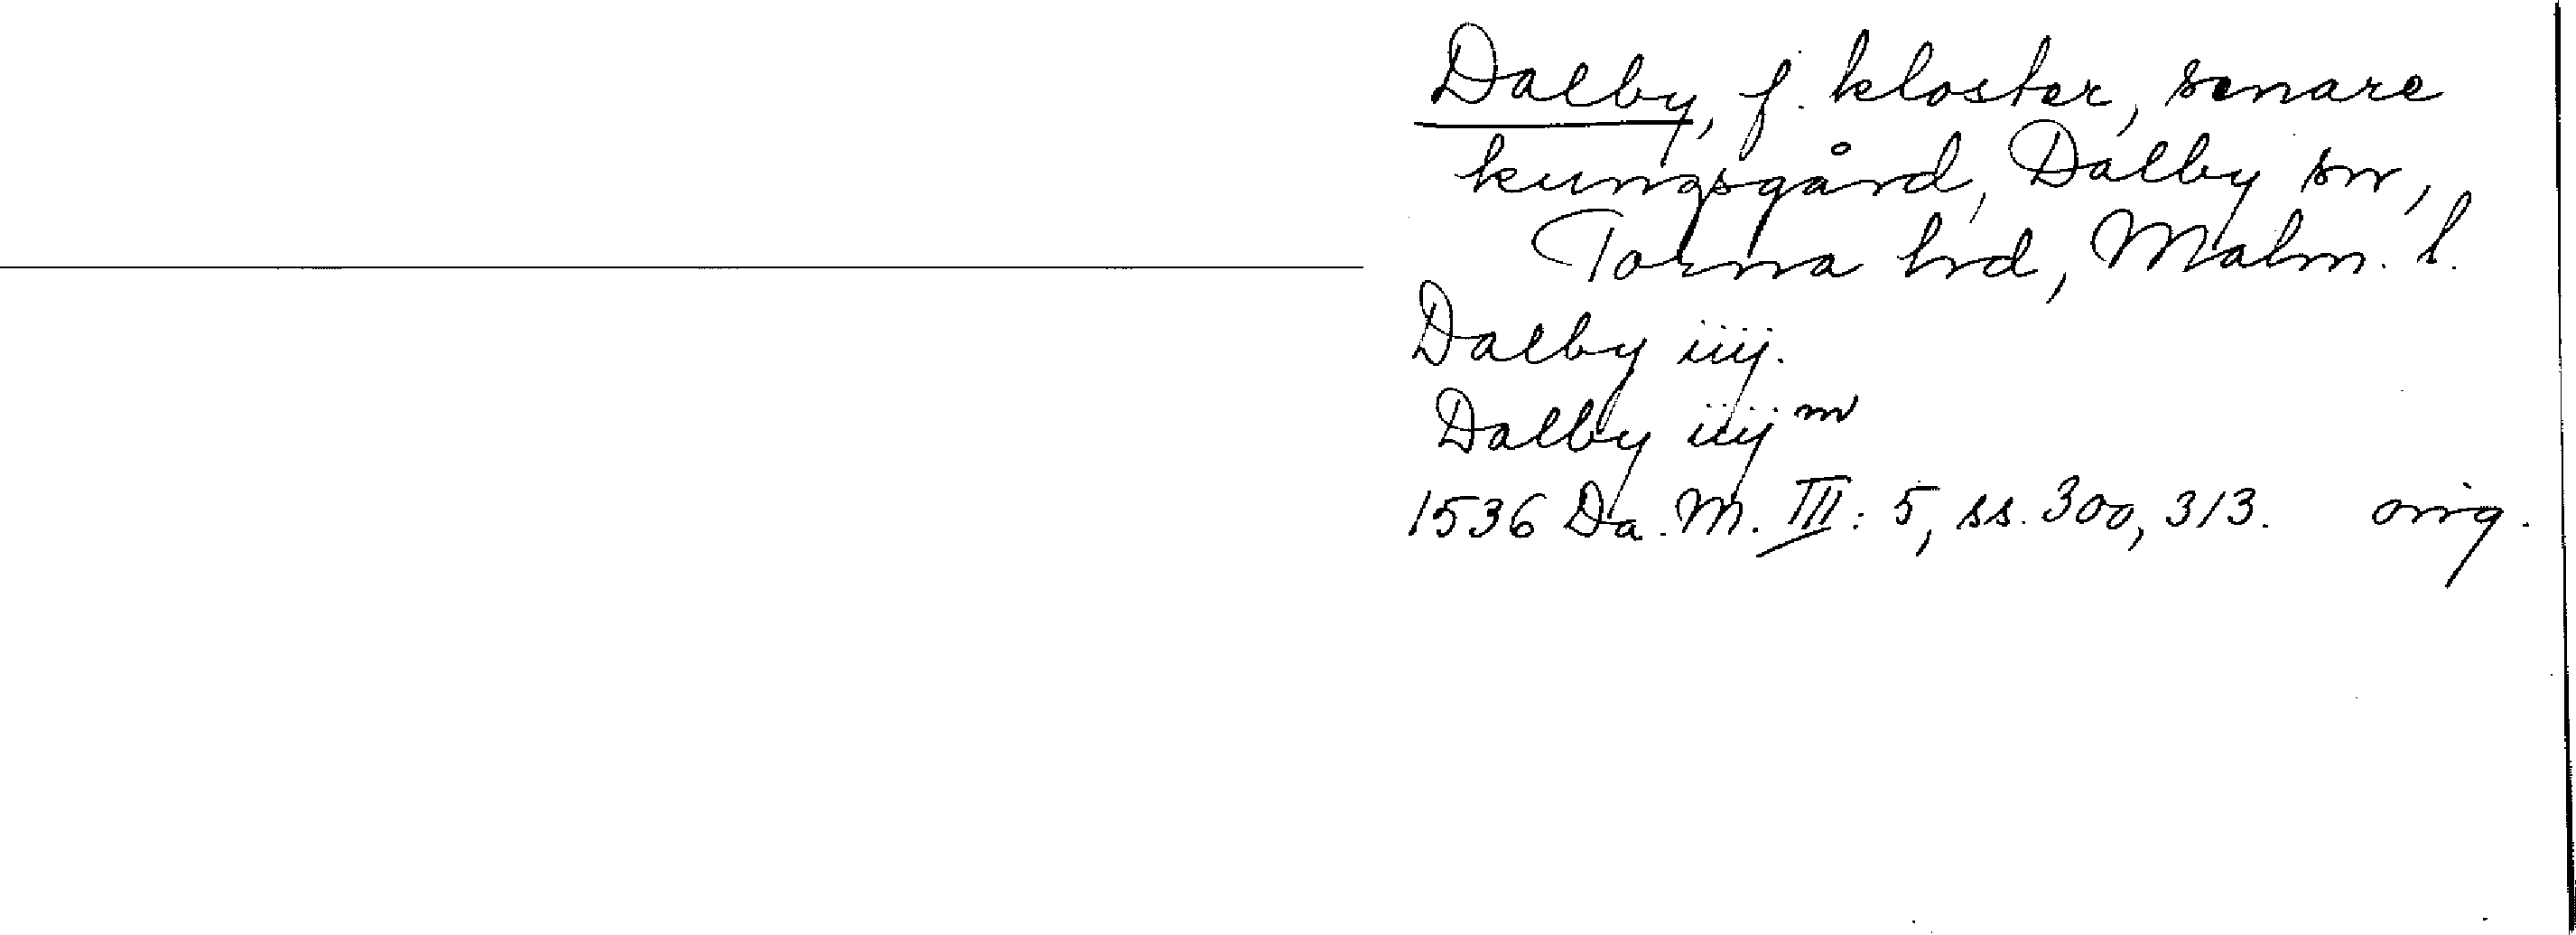 Dalby, f. kloster, senare
kungsgård, Dalby sn,
Torna hd, Malm. l.
Dalby iiij.
Dalby iiij m
1536 Da. M. III: 5, ss. 300, 313. orig.